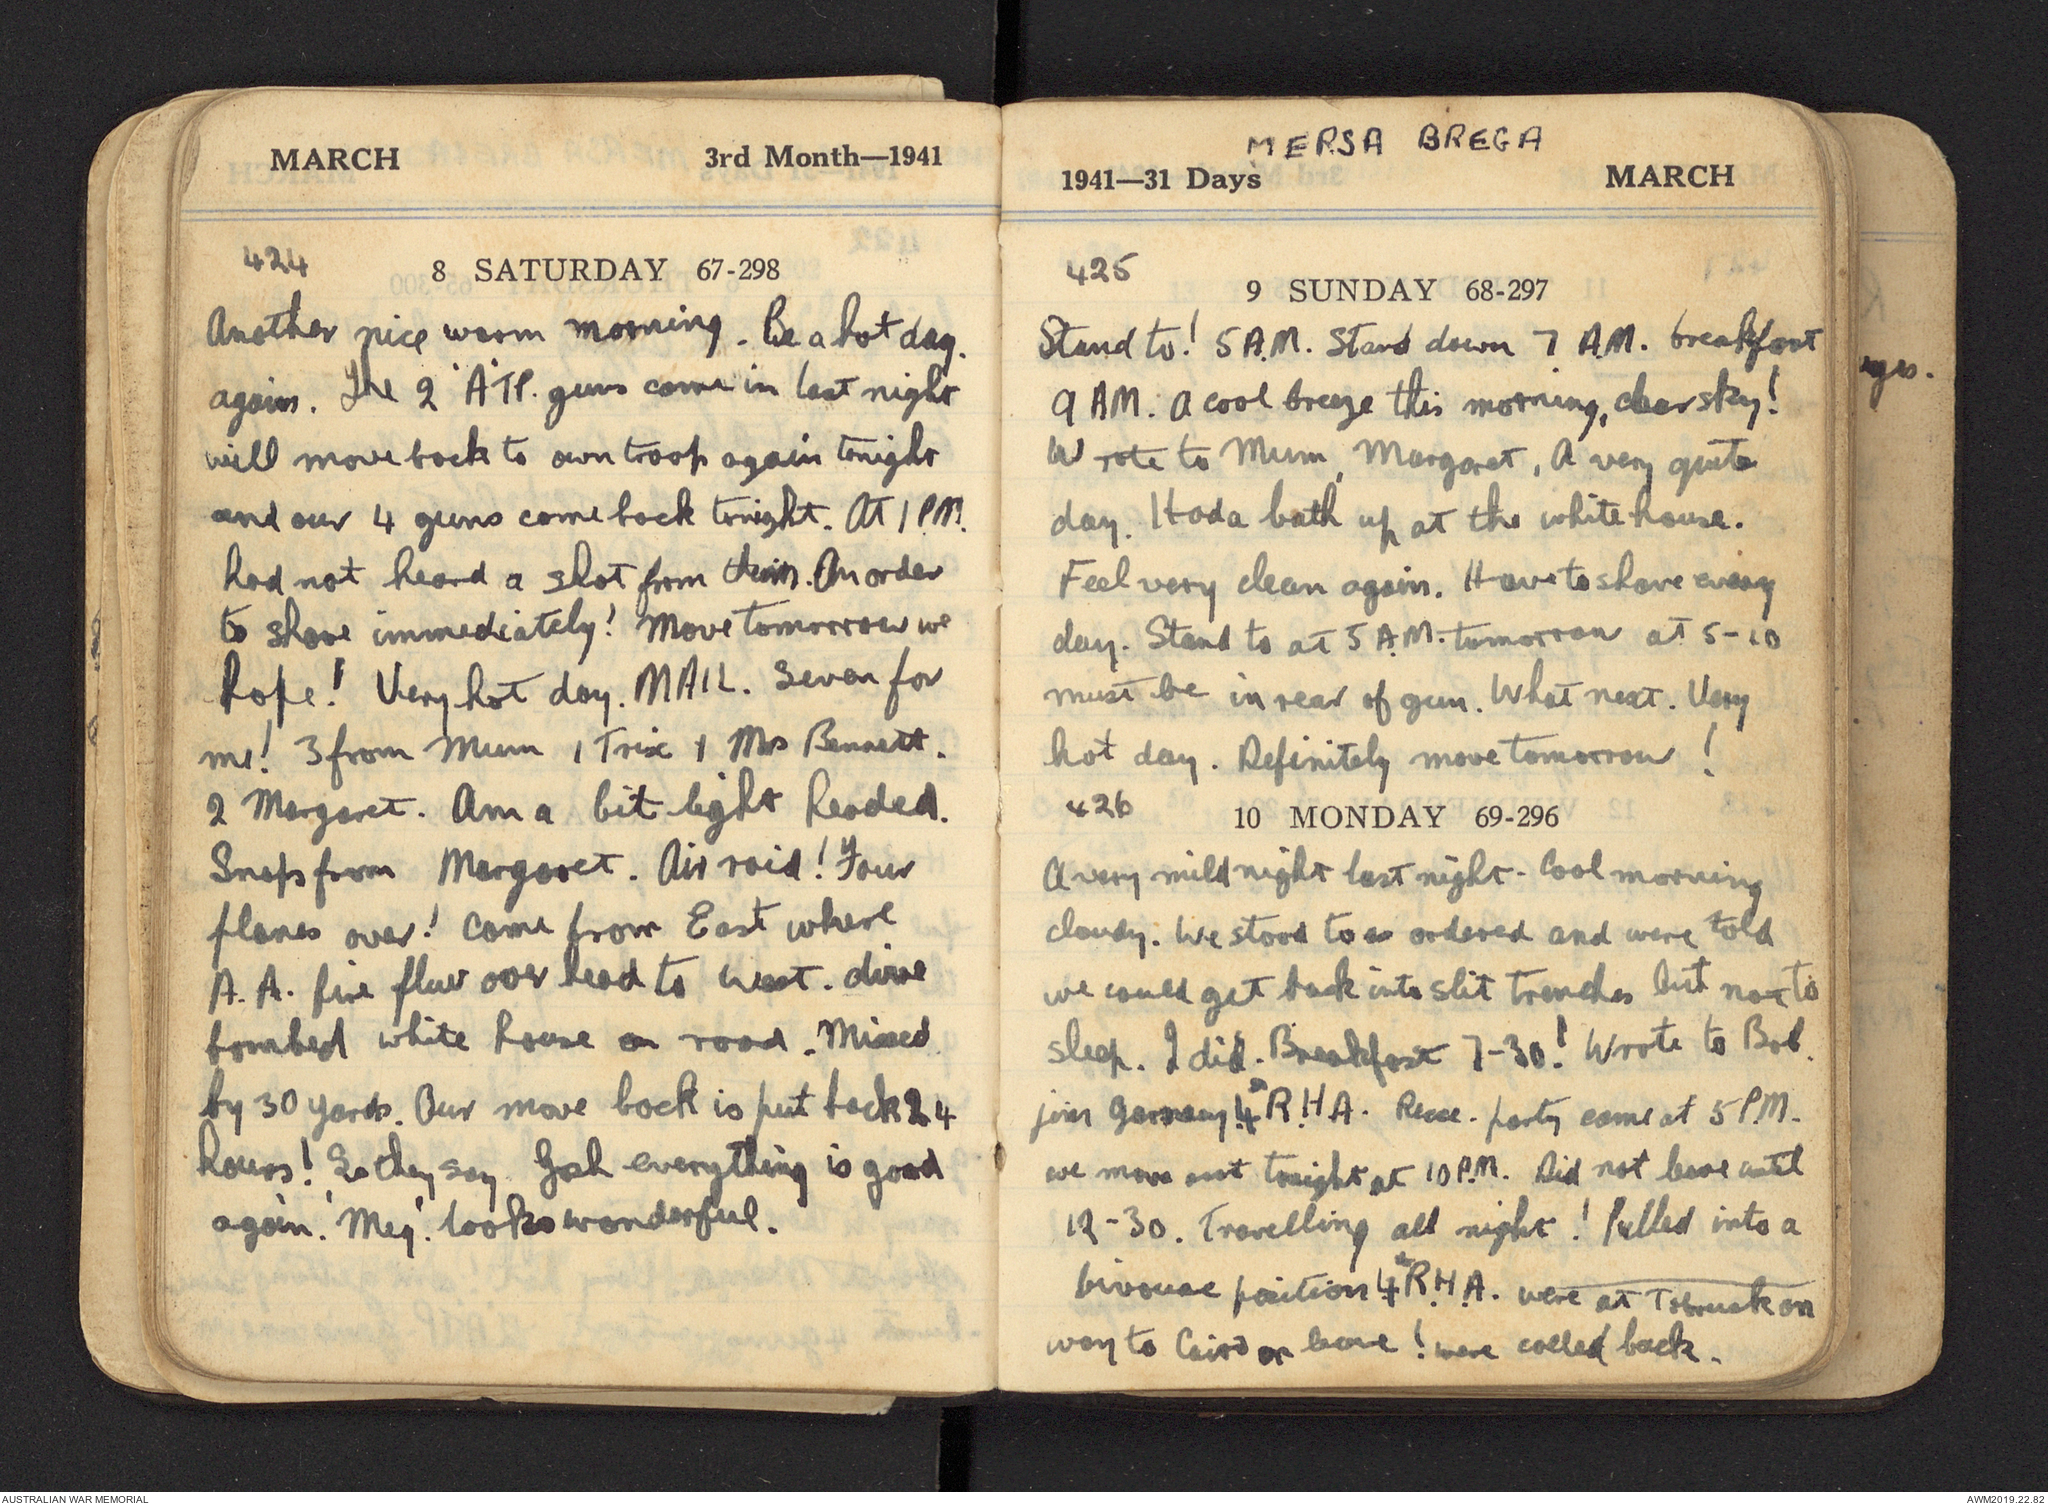 MARCH 3rd Month—1941
424
8 SATURDAY 67-298
Another nice warm morning. Be a hot day.
again. The 2 'A' TP. guns come in last night
will move back to own troop again tonight
and our 4 guns come back tonight. At 1 P.M.
had not heard a shot from them. An order
to shave immediately! Move tomorrow we
hope! Very hot day. MAIL. Seven for
me! 3 from Mum 1 Trix 1 Mrs Bennett.
2 Margaret. Am a bit light headed.
Snaps from Margaret. Air raid! Four
planes over! Came from East where
A.A. fire flew over head to West. dive
bombed white house on road. Missed
by 30 yards. Our move back is put back 24
hours! So they say. Gosh everything is good
again. 'Meg'. looks wonderful.
MERSA BREGA
1941—31 Days MARCH
425
9 SUNDAY 68-297
Stand to! 5 A.M. Stand down 7 A.M. breakfast
9 AM. A cool breeze this morning, clear sky!
Wrote to Mum, Margaret, A very quite
day. Had a bath up at the white house.
Feel very clean again. Have to shave every
day. Stand to at 5 A.M. tomorrow at 5-10
must be in rear of gun. What next. Very
hot day. Definitely move tomorrow!
426
10 MONDAY 69-296
A very mild night last night. Cool morning
cloudy. We stood to as ordered and were told
we could get back into slit trenches but not to
sleep. I did. Breakfast 7-30! Wrote to Bob.
join 4th R.H.A. Recce. party came at 5 P.M.
we move out tonight at 10 P.M. Did not leave until
12-30. Travelling all night! Pulled into a
bivouac position 4th R.H.A. were at Tobruk on
way to Cairo on leave! were called back.
ges.
AUSTRALIAN WAR MEMORIAL AWM2019.22.82